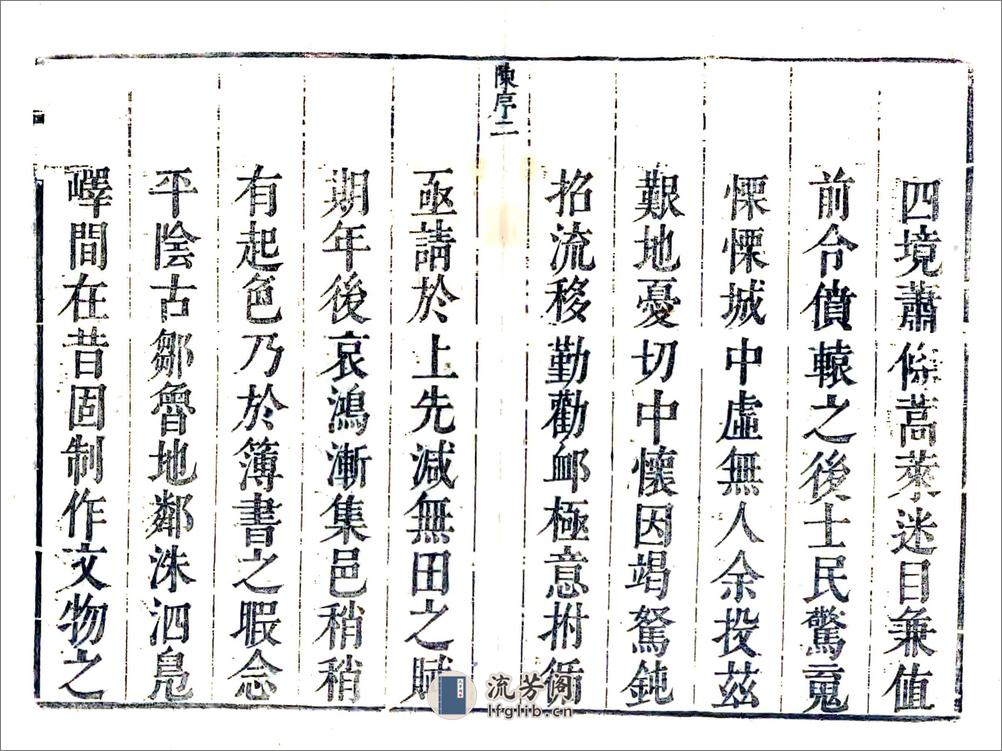 四境蕭條蒿萊迷目兼值
前令僨轅之後士民驚䰟
慄慄城中虛無人余投茲
艱地憂切中懷因竭駑鈍
招流移勤勸䘏極意拊循
陳序二
亟請於上先減無田之賦
期年後哀鴻漸集邑稍稍
有起色乃於簿書之暇念
平陰古鄒魯地鄰洙泗鳧
嶧間在昔固制作文物之
流芳阁
lfglib.cn